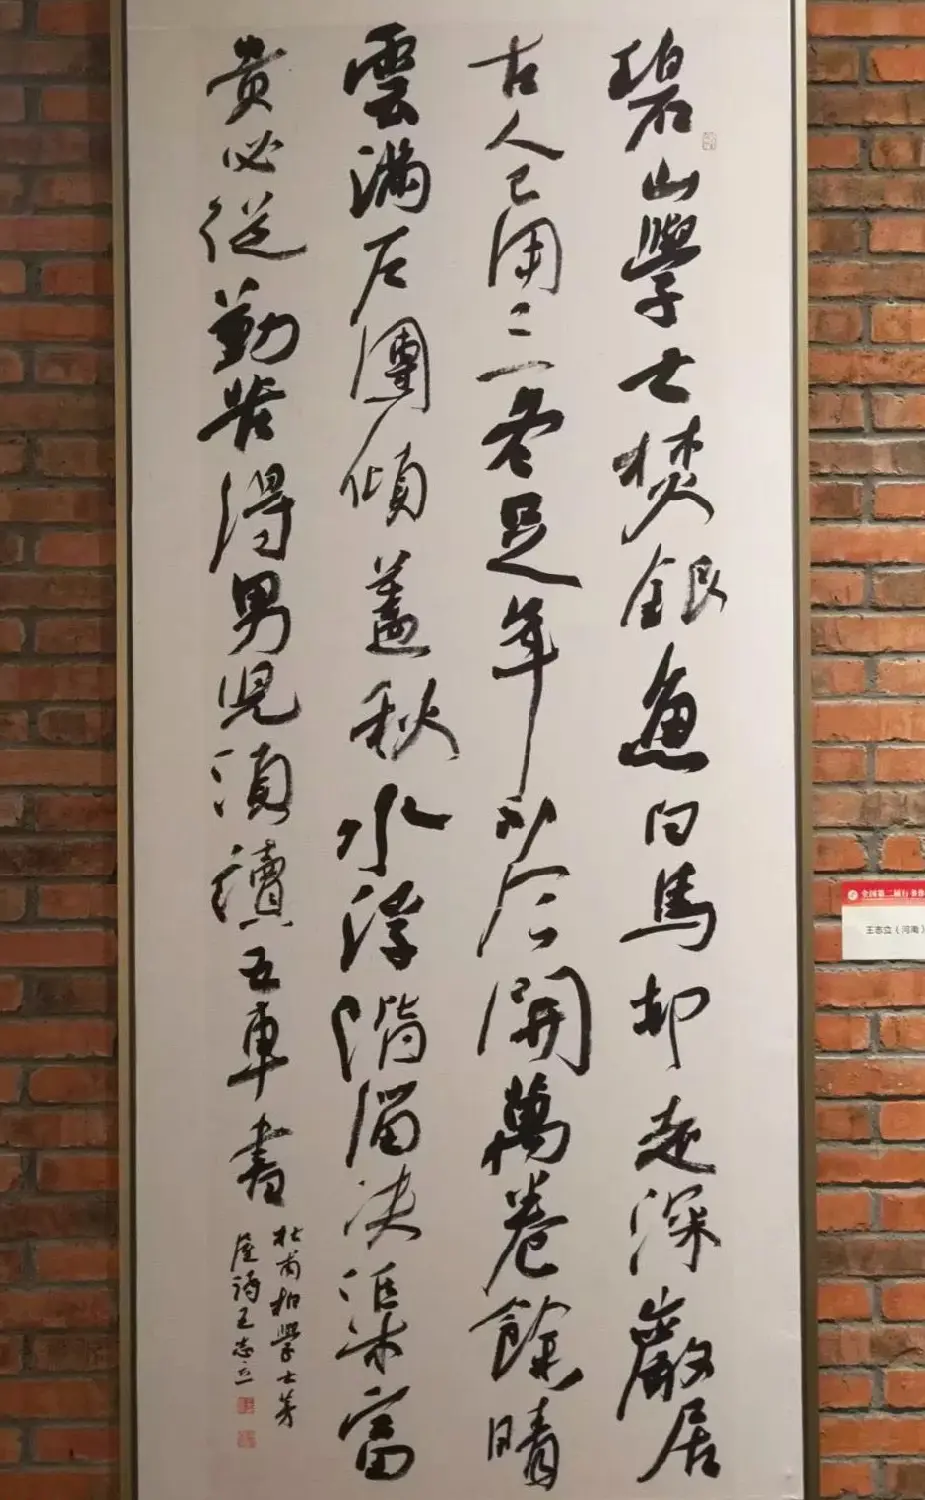 碧山學士焚銀魚白馬却走深巖居
古人已用三冬足年少今開萬卷餘晴
雲滿户團傾蓋秋水浮階溜决渠富
貴必從勤苦得男兒須讀五車書
杜甫柏學士茅
屋詩王志立
全国第二届行书作
王志立（河南）